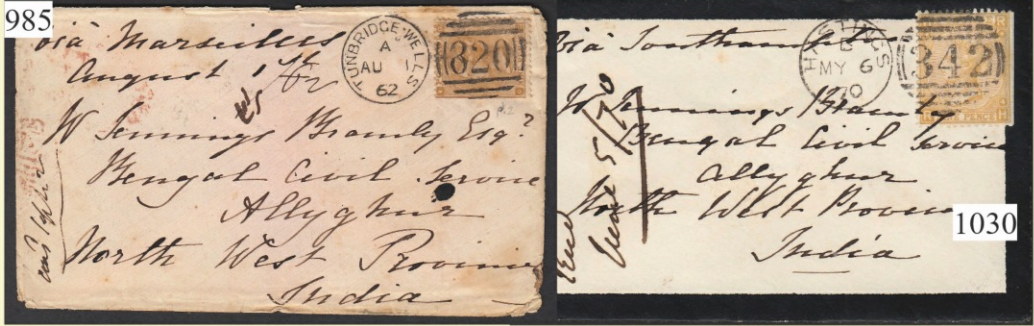 985
via Marseilles
August 1st/62
TUNBRIDGE-WELLS
A
AU 1
62
820
W Jennings Bramly Esqr
Bengal Civil Service
Allyghur
North West Provinces
India
1030
via Southampton
HASTINGS
E
MY 6
70
342
PENCE
W Jennings Bramly
Bengal Civil Service
Allyghur
North West Provin
India